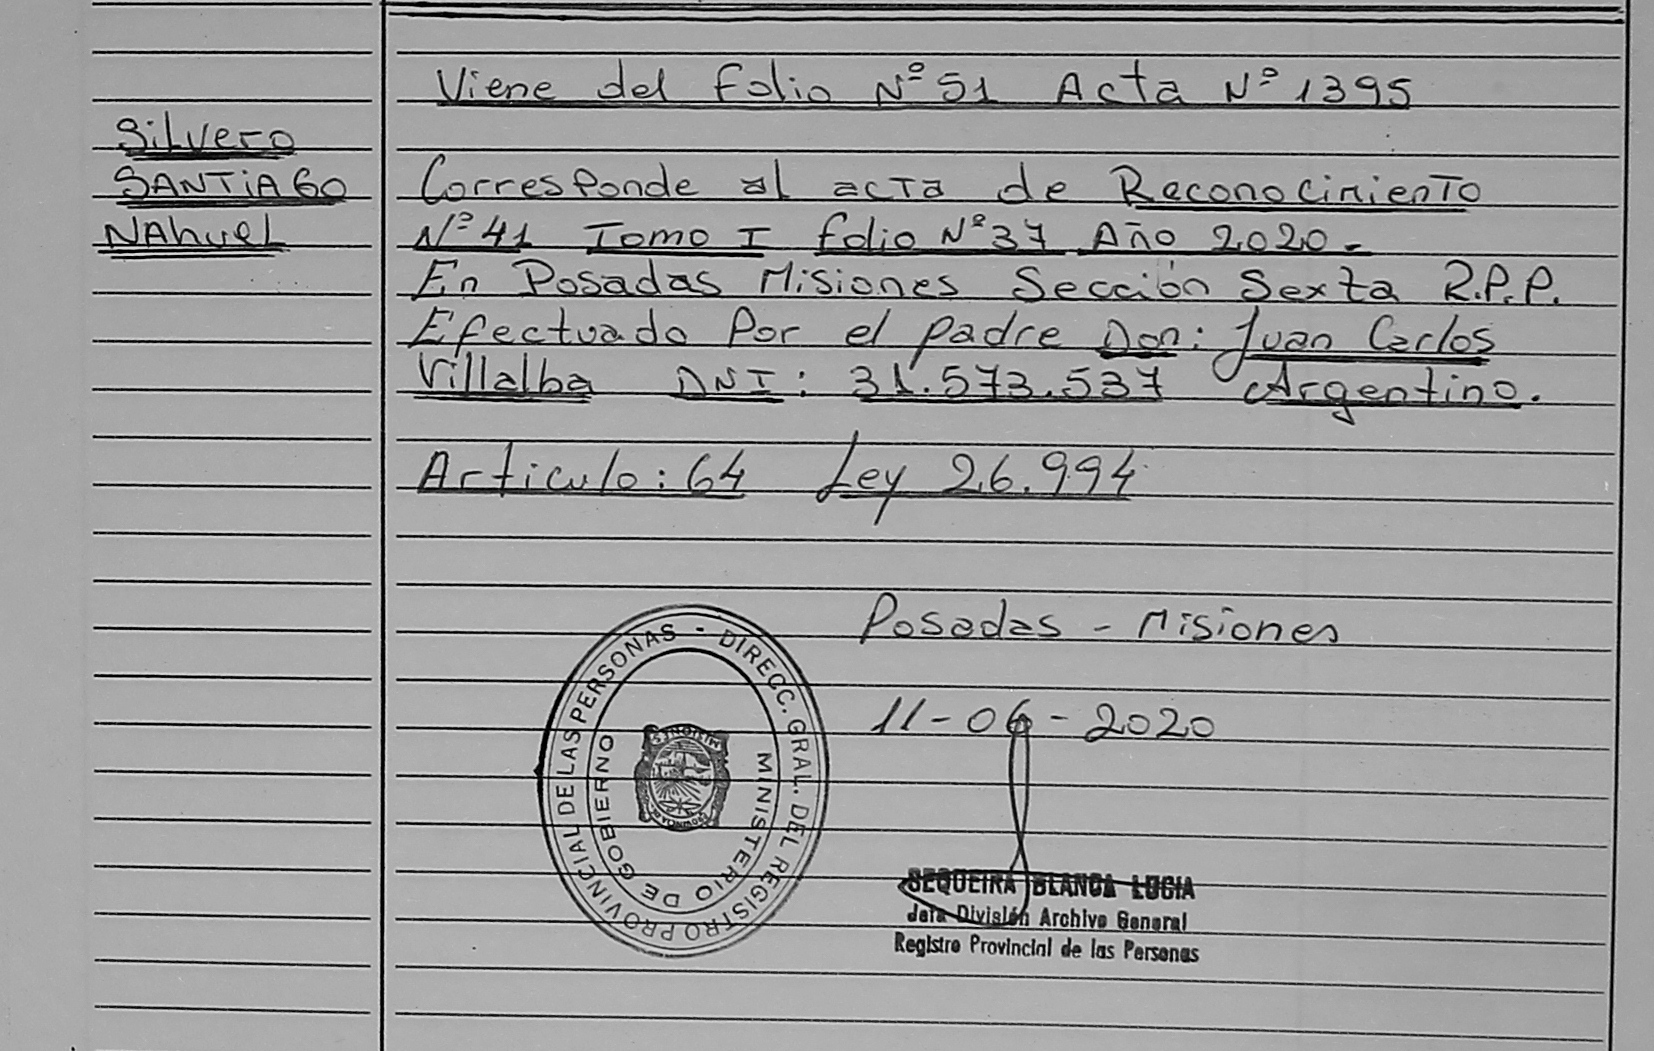 Viene del folio Nº 51 Acta Nº 1395
Silvero
SANTiAGO
NAhuel
Corresponde al acta de Reconocimiento
Nº 41 Tomo I folio Nº 37 Año 2020.-
En Posadas Misiones Sección Sexta R.P.P.
Efectuado Por el padre Don: Juan Carlos
Villalba DNI: 31.573.537 Argentino.
Articulo: 64 Ley 26.994
Posadas - Misiones
11-06-2020
DIRECC. GRAL. DEL REGISTRO PROVINCIAL DE LAS PERSONAS -
MINISTERIO DE GOBIERNO
MISIONES
PROVINCIA DE
SEQUEIRA BLANCA LUCIA
Jefa División Archivo General
Registro Provincial de las Personas